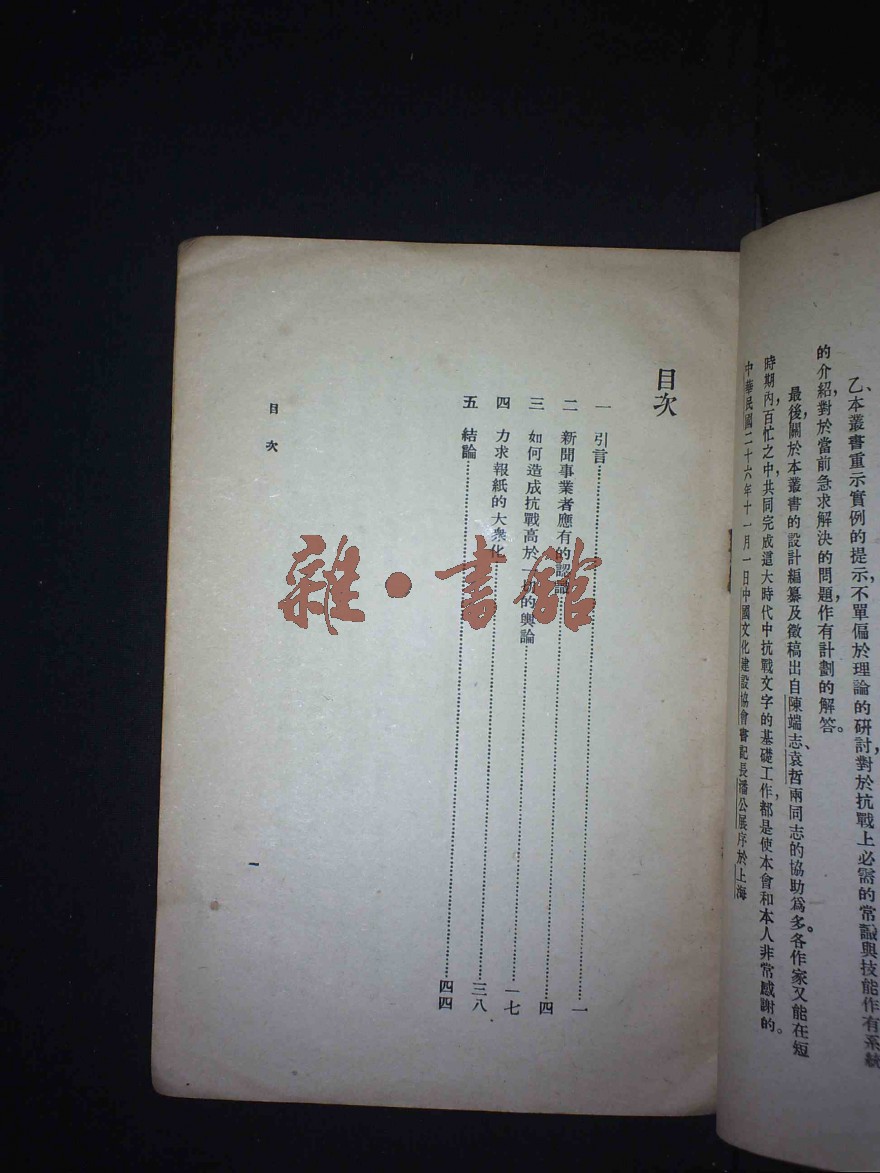 乙、本叢書重示實例的提示，不單偏於理論的硏討，對於抗戰上必需的常識與技能作有系統
的介紹，對於當前急求解決的問題，作有計劃的解答。
最後，關於本叢書的設計編纂及徵稿出自陳端志、袁哲兩同志的協助爲多。各作家又能在短
時期內，百忙之中，共同完成這大時代中抗戰文字的基礎工作，都是使本會和本人非常感謝的。
中華民國二十六年十一月一日中國文化建設協會書記長潘公展序於上海
目次
一 引言……一
二 新聞事業者應有的認識……四
三 如何造成抗戰高於一切的輿論……一七
四 力求報紙的大衆化……三八
五 結論……四四
目次
一
雜·書館